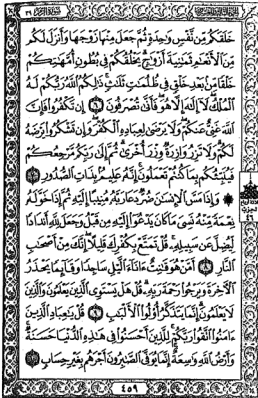 خَلَقَكُم مِّن نَّفْسٍ وَٰحِدَةٍ ثُمَّ جَعَلَ مِنْهَا زَوْجَهَا وَأَنزَلَ لَكُم
مِّنَ ٱلْأَنْعَٰمِ ثَمَٰنِيَةَ أَزْوَٰجٍ يَخْلُقُكُمْ فِى بُطُونِ أُمَّهَٰتِكُمْ
خَلْقًا مِّنۢ بَعْدِ خَلْقٍ فِى ظُلُمَٰتٍ ثَلَٰثٍ ذَٰلِكُمُ ٱللَّهُ رَبُّكُمْ لَهُ
ٱلْمُلْكُ لَآ إِلَٰهَ إِلَّا هُوَ فَأَنَّىٰ تُصْرَفُونَ ٦ إِن تَكْفُرُوا۟ فَإِنَّ
ٱللَّهَ غَنِىٌّ عَنكُمْ وَلَا يَرْضَىٰ لِعِبَادِهِ ٱلْكُفْرَ وَإِن تَشْكُرُوا۟ يَرْضَهُ
لَكُمْ وَلَا تَزِرُ وَازِرَةٌ وِزْرَ أُخْرَىٰ ثُمَّ إِلَىٰ رَبِّكُم مَّرْجِعُكُمْ
فَيُنَبِّئُكُم بِمَا كُنتُمْ تَعْمَلُونَ إِنَّهُۥ عَلِيمٌۢ بِذَاتِ ٱلصُّدُورِ ٧
۞ وَإِذَا مَسَّ ٱلْإِنسَٰنَ ضُرٌّ دَعَا رَبَّهُۥ مُنِيبًا إِلَيْهِ ثُمَّ إِذَا خَوَّلَهُۥ
نِعْمَةً مِّنْهُ نَسِىَ مَا كَانَ يَدْعُوٓا۟ إِلَيْهِ مِن قَبْلُ وَجَعَلَ لِلَّهِ أَندَادًا
لِّيُضِلَّ عَن سَبِيلِهِۦ قُلْ تَمَتَّعْ بِكُفْرِكَ قَلِيلًا إِنَّكَ مِنْ أَصْحَٰبِ
ٱلنَّارِ ٨ أَمَّنْ هُوَ قَٰنِتٌ ءَانَآءَ ٱلَّيْلِ سَاجِدًا وَقَآئِمًا يَحْذَرُ
ٱلْءَاخِرَةَ وَيَرْجُوا۟ رَحْمَةَ رَبِّهِۦ قُلْ هَلْ يَسْتَوِى ٱلَّذِينَ يَعْلَمُونَ وَٱلَّذِينَ
لَا يَعْلَمُونَ إِنَّمَا يَتَذَكَّرُ أُو۟لُوا۟ ٱلْأَلْبَٰبِ ٩ قُلْ يَٰعِبَادِ ٱلَّذِينَ
ءَامَنُوا۟ ٱتَّقُوا۟ رَبَّكُمْ لِلَّذِينَ أَحْسَنُوا۟ فِى هَٰذِهِ ٱلدُّنْيَا حَسَنَةٌ
وَأَرْضُ ٱللَّهِ وَٰسِعَةٌ إِنَّمَا يُوَفَّى ٱلصَّٰبِرُونَ أَجْرَهُم بِغَيْرِ حِسَابٍ ١٠
٤٥٩